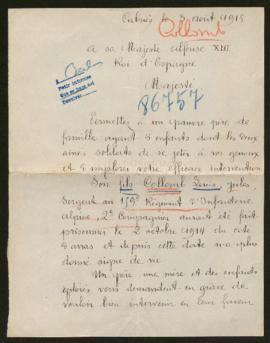 le 3 avril 1915
Collomb
A sa Majesté Alfonse XIII
Roi d'Espagne
Majesté
86757
Permettez à un pauvre père de
famille ayant 8 enfants dont les deux
ainés soldats de se jeter à vos genoux
et d'implorer votre efficace intervention
Son fils Collomb Louis, Jules
Sergent au 159e Régiment d'Infanterie
alpine, 2e Compagnie aurait été fait
prisonnier le 2 octobre 1914 du coté
d'Arras et depuis cette date n'a plus
donné signe de vie
Un père une mère et des enfants
éplorés vous demandent en grâce de
vouloir bien intervenir en leur faveur